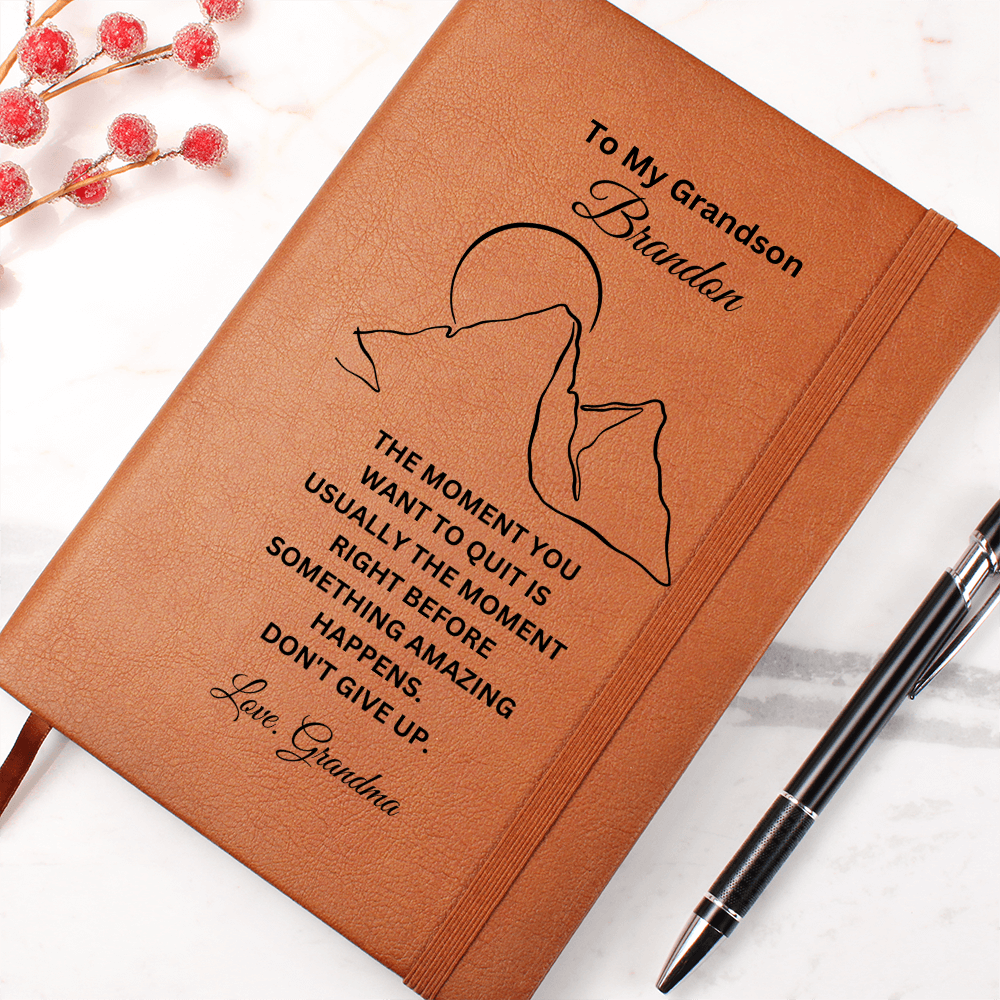 To My Grandson
Brandon
THE MOMENT YOU
WANT TO QUIT IS
USUALLY THE MOMENT
RIGHT BEFORE
SOMETHING AMAZING
HAPPENS.
DON'T GIVE UP.
Love, Grandma